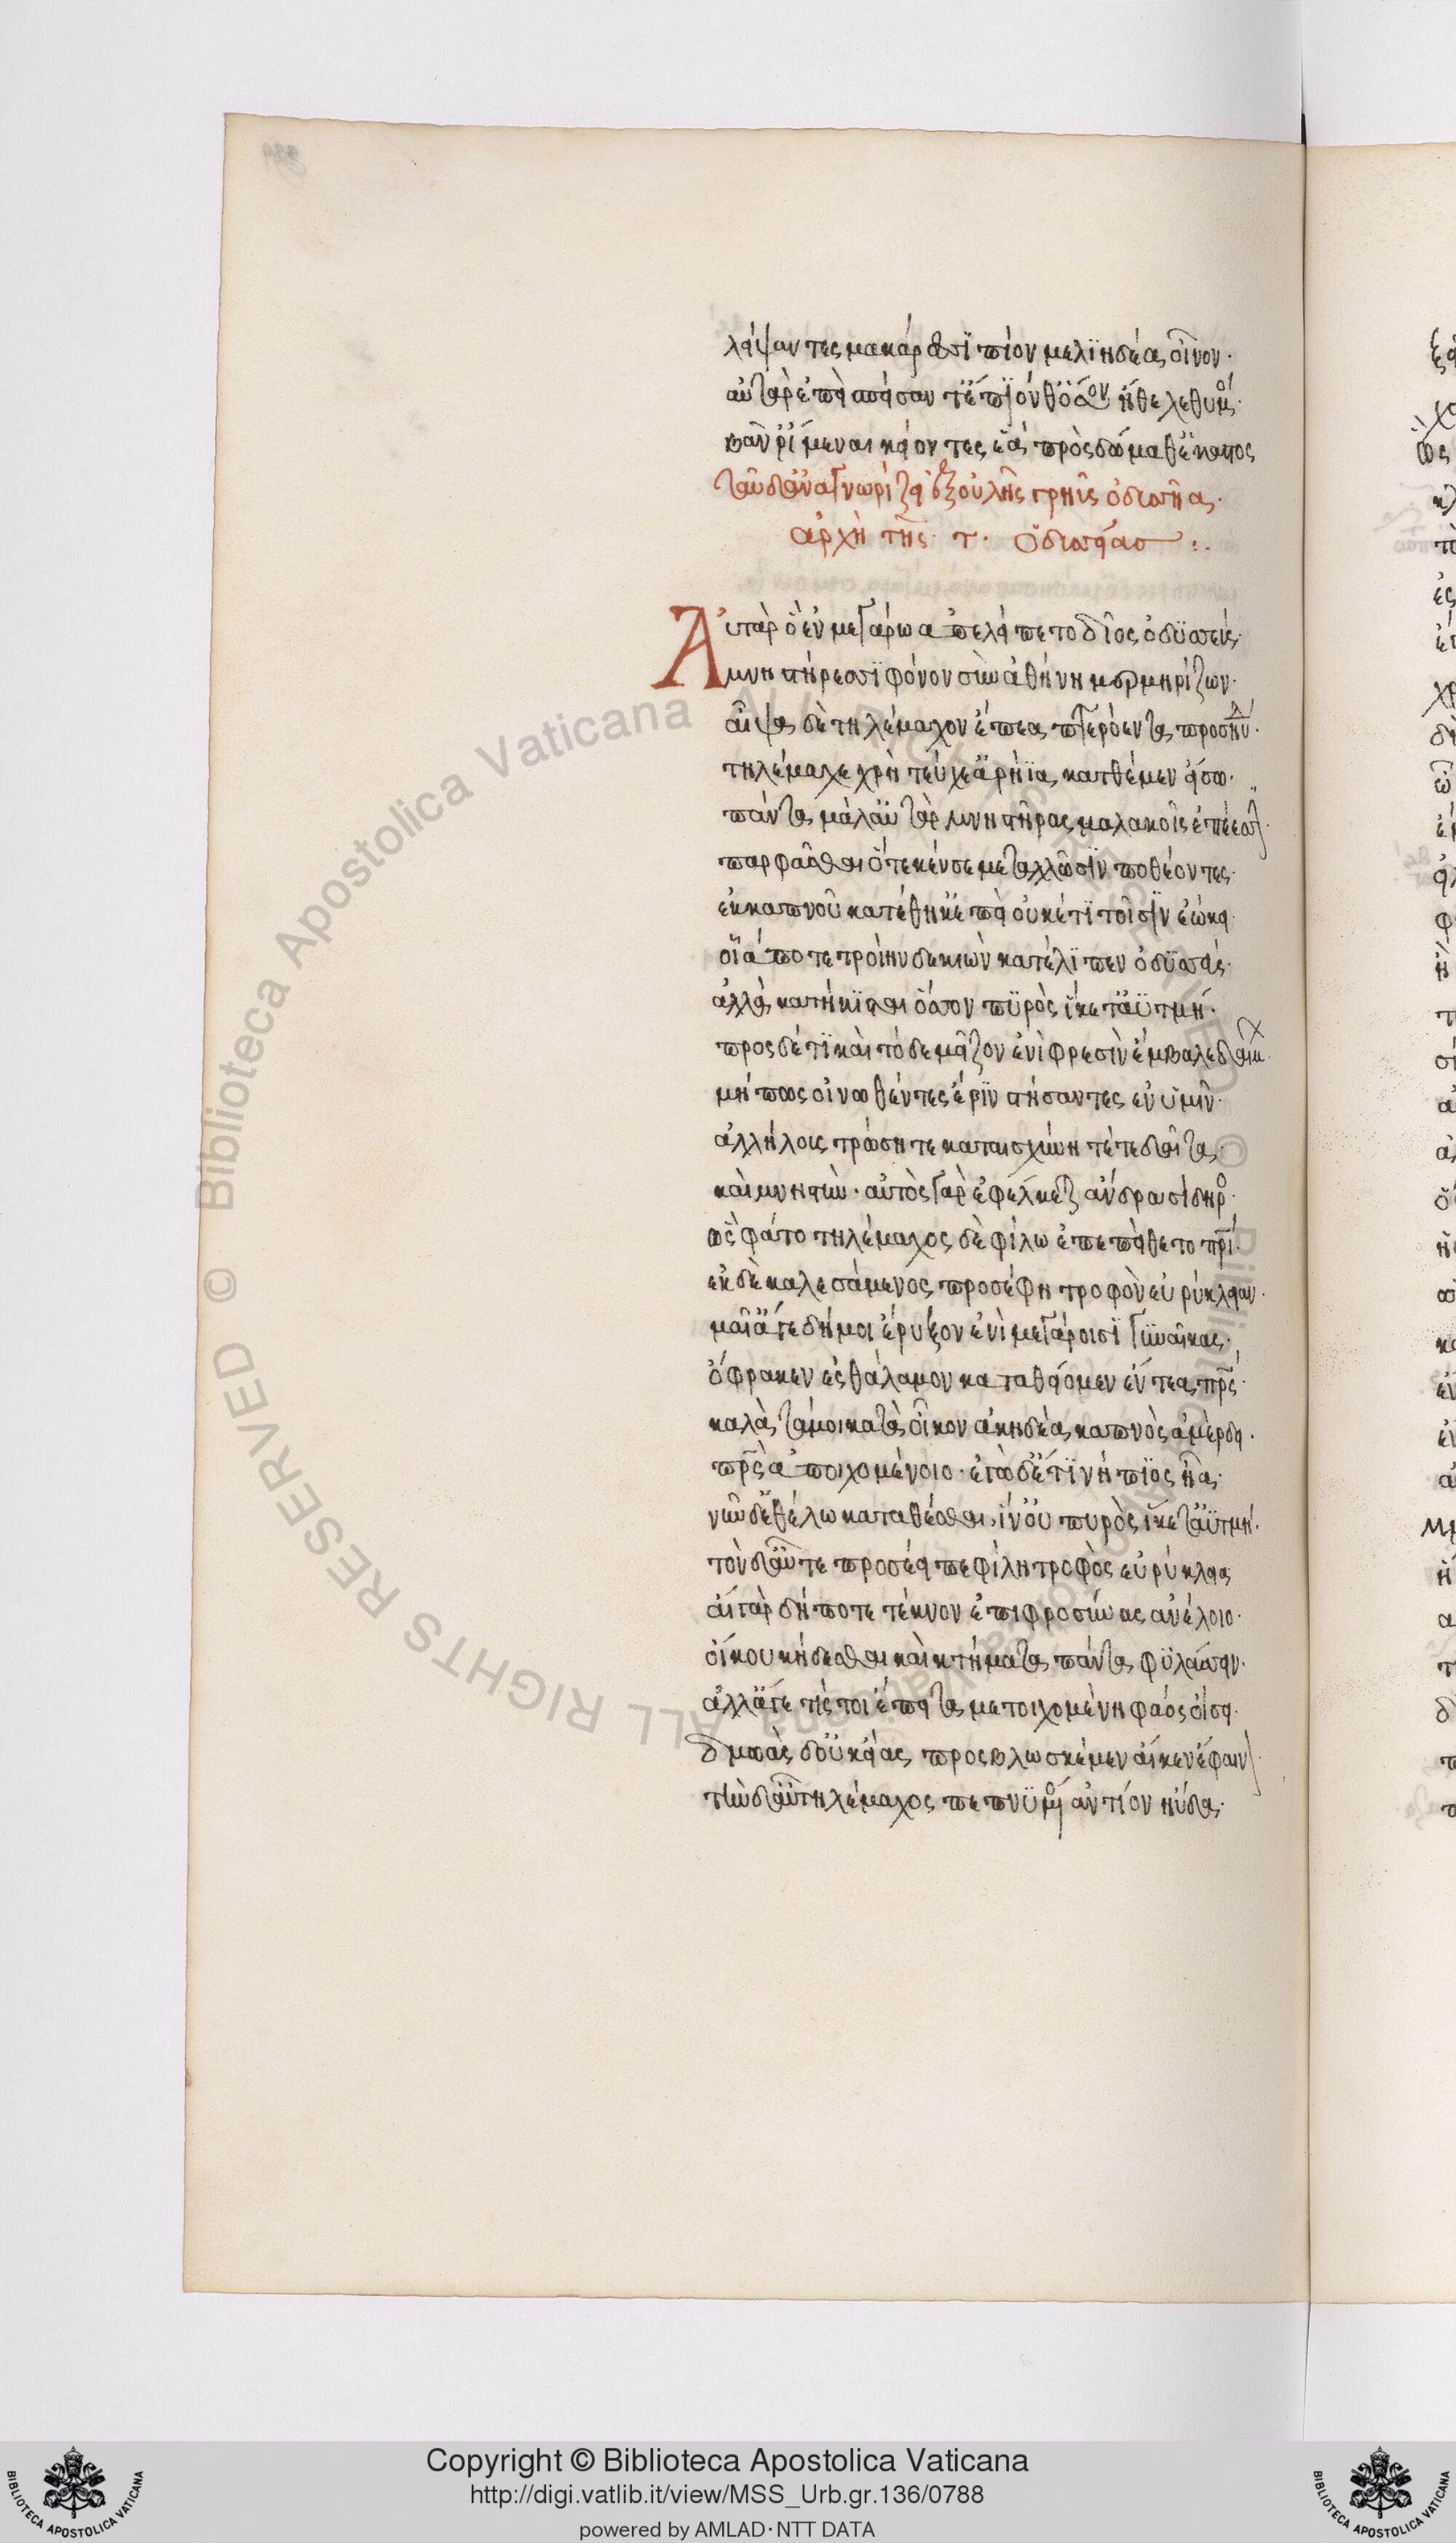 λείψαντες μακάρεσσι πίον μελιηδέα οἶνον·
αὐτὰρ ἐπεὶ σπεῖσαν τ' ἔπιόν θ' ὅσον ἤθελε θυμός·
βάν ῥ' ἴμεναι κείοντες ἑὰ πρὸς δώμαθ' ἕκαστος
ταῦ δ' ἀναγνωρίζει ἐξ οὐλῆς γρηῢς ὀδυσσῆα·
ἀρχὴ τῆς τ· ὀδυσσείας :·
Αὐτὰρ ὃ ἐν μεγάρω ὑπελείπετο δῖος ὀδυσσεύς·
μνηστήρεσσι φόνον σὺν ἀθήνη μερμηρίζων·
αἶψα δὲ τηλέμαχον ἔπεα πτερόεντα προσηύδα·
τηλέμαχε χρὴ τεύχε' ἀρήϊα κατθέμεν εἴσω·
πάντα μάλ' αὐτὰρ μνηστῆρας μαλακοῖς ἐπέεσσι·
παρφᾶσθαι ὅτε κέν σε μεταλλῶσιν ποθέοντες·
ἐκ καπνοῦ κατέθηκ' ἐπεὶ οὐκέτι τοῖσιν ἐώκει·
οἷά ποτε τροίην δε κιὼν κατέλιπεν ὀδυσσεύς·
ἀλλὰ κατήκισται ὅσσον πυρὸς ἵκετ' ἀϋτμή·
πρὸς δέ τι καὶ τόδε μεῖζον ἐνὶ φρεσὶν ἔμβαλε δαίμων·
μή πως οἰνωθέντες ἔριν στήσαντες ἐν ὑμῖν·
ἀλλήλοις τρώσητε καταισχύνητέ τε δαῖτα·
καὶ μνηστύν· αὐτὸς γὰρ ἐφέλκεται ἄνδρα σίδηρος·
ὣς φάτο τηλέμαχος δὲ φίλω ἐπεπείθετο πατρί·
ἐκ δὲ καλεσάμενος προσέφη τροφὸν εὐρύκλειαν·
μαῖ' ἄγε δή μοι ἔρυξον ἐνὶ μεγάροισι γυναῖκας·
ὄφρα κεν ἐς θάλαμον καταθείομεν ἔντεα πατρός·
καλὰ τά μοι κατὰ οἶκον ἀκηδέα καπνὸς ἀμέρδει·
πατρὸς ἀποιχομένοιο· ἐγὼ δ' ἔτι νήπιος ἦα·
νῦν δ' ἐθέλω καταθέσθαι ἵν' οὐ πυρὸς ἵκετ' ἀϋτμή·
τὸν δ' αὖτε προσέειπε φίλη τροφὸς εὐρύκλεια
αἲ γὰρ δή ποτε τέκνον ἐπιφροσύνας ἀνέλοιο·
οἴκου κήδεσθαι καὶ κτήματα πάντα φυλάσσειν·
ἀλλ' ἄγε τίς τοι ἔπειτα μετοιχομένη φάος οἴσει·
δμωὰς δ' οὐκ εἴας προβλωσκέμεν αἵ κεν ἔφαινον·
τὴν δ' αὖ τηλέμαχος πεπνυμένος ἀντίον ηὔδα·
Copyright © Biblioteca Apostolica Vaticana
http://digi.vatlib.it/view/MSS_Urb.gr.136/0788
powered by AMLAD·NTT DATA